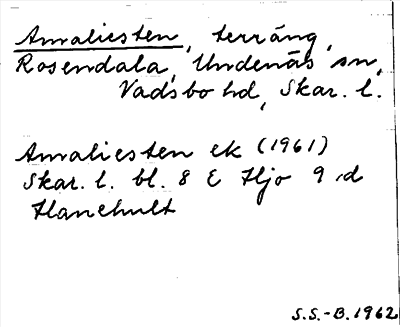 Amaliesten, terräng,
Rosendala, Undenäs sn,
Vadsbo hd, Skar. l.
Amaliesten ek (1961)
Skar. l. bl. 8 E Hjo 9 d
Hanehult
S.S.-B. 1962